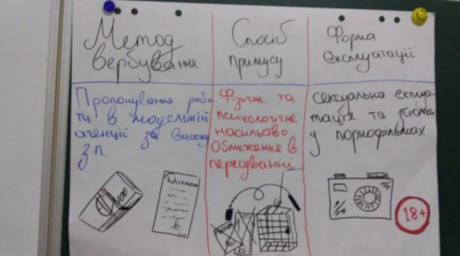 Метод
вербування
Спосіб
примусу
Форма
експлуатації
Пропонування робо
ти в модельній
агенції за високу
з.п.
Фізичне та
психологічне
насильство
Обмеження в
пересуванні
сексуальна експлу
атація та
у порнофільмах
18+